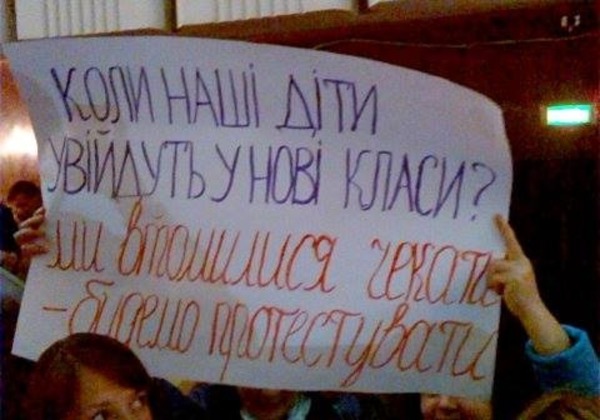 КОЛИ НАШІ ДІТИ
УВІЙДУТЬ У НОВІ КЛАСИ?
ми втомилися чекати
- будемо протестувати